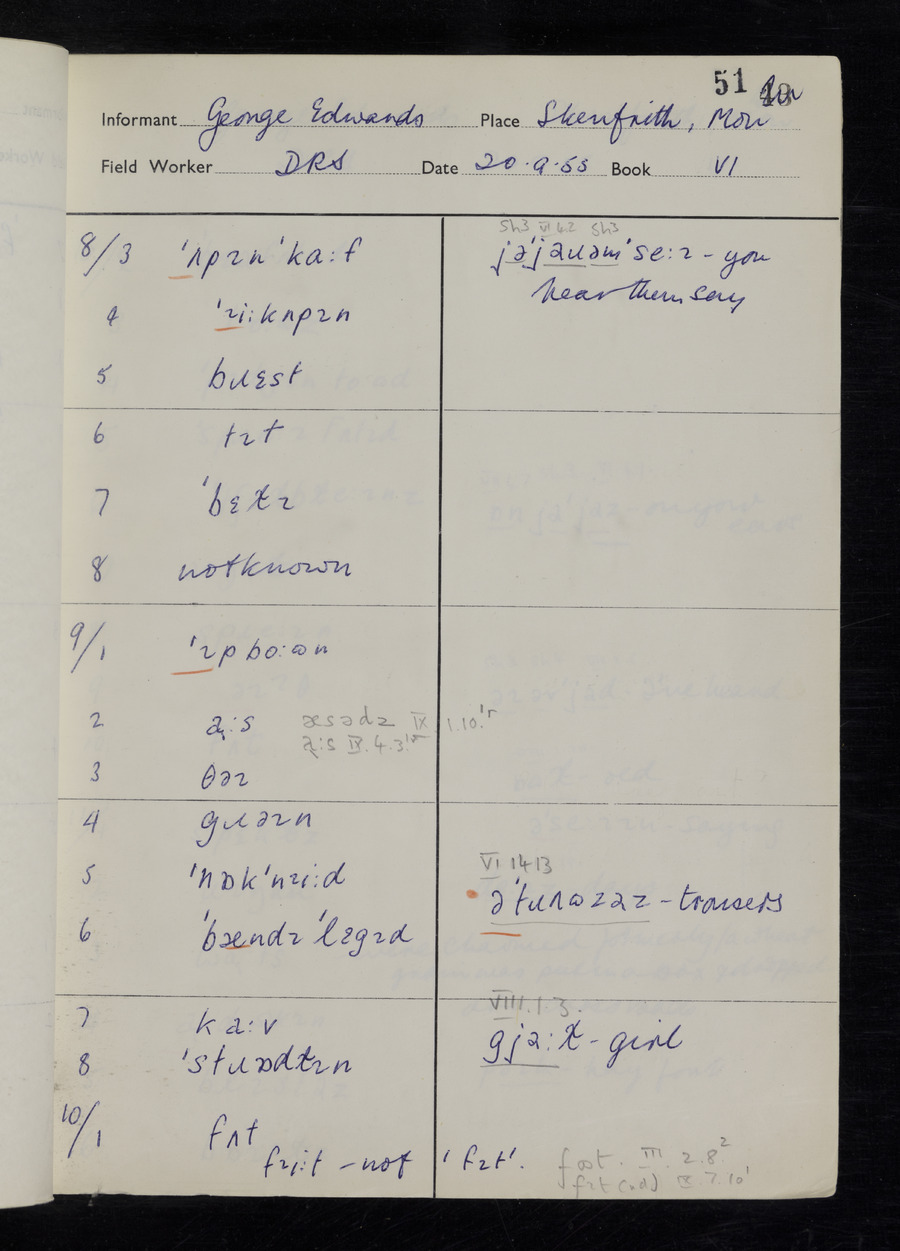 51
Informant George Edwards Place Skenfrith, Mon
Field Worker DRS Date 20.9.55 Book VI
8/3 ˈʌpɪn ˈkaːf
4 ˈɹiːknpɪn
5 bɹɛst
6 tɪt
7 ˈbɛɫɪ
8 not known
9/1 ˈɪp boːʊn
2 aːs æsədɪ IX 1.10.
aːs IX. 4. 3.
3 θəɪ
4 gɹəɪn
5 ˈnɒkˈnɪiːd
6 ˈbændɪ ˈlɛgɪd
7 kaːv
8 ˈstɹɒdɫɪn
10/1 fʌt
fɪiːt – not ˈfɪtˈ.
foot. III. 2.8.
Sh3 VI 4.2 Sh3
jəˈjaɹəmˈseːɪ – you
hear them say
VI 14 13
əˈtɹʌʊzəz – trousers
VIII. 1. 3.
gjəːɫ – girl